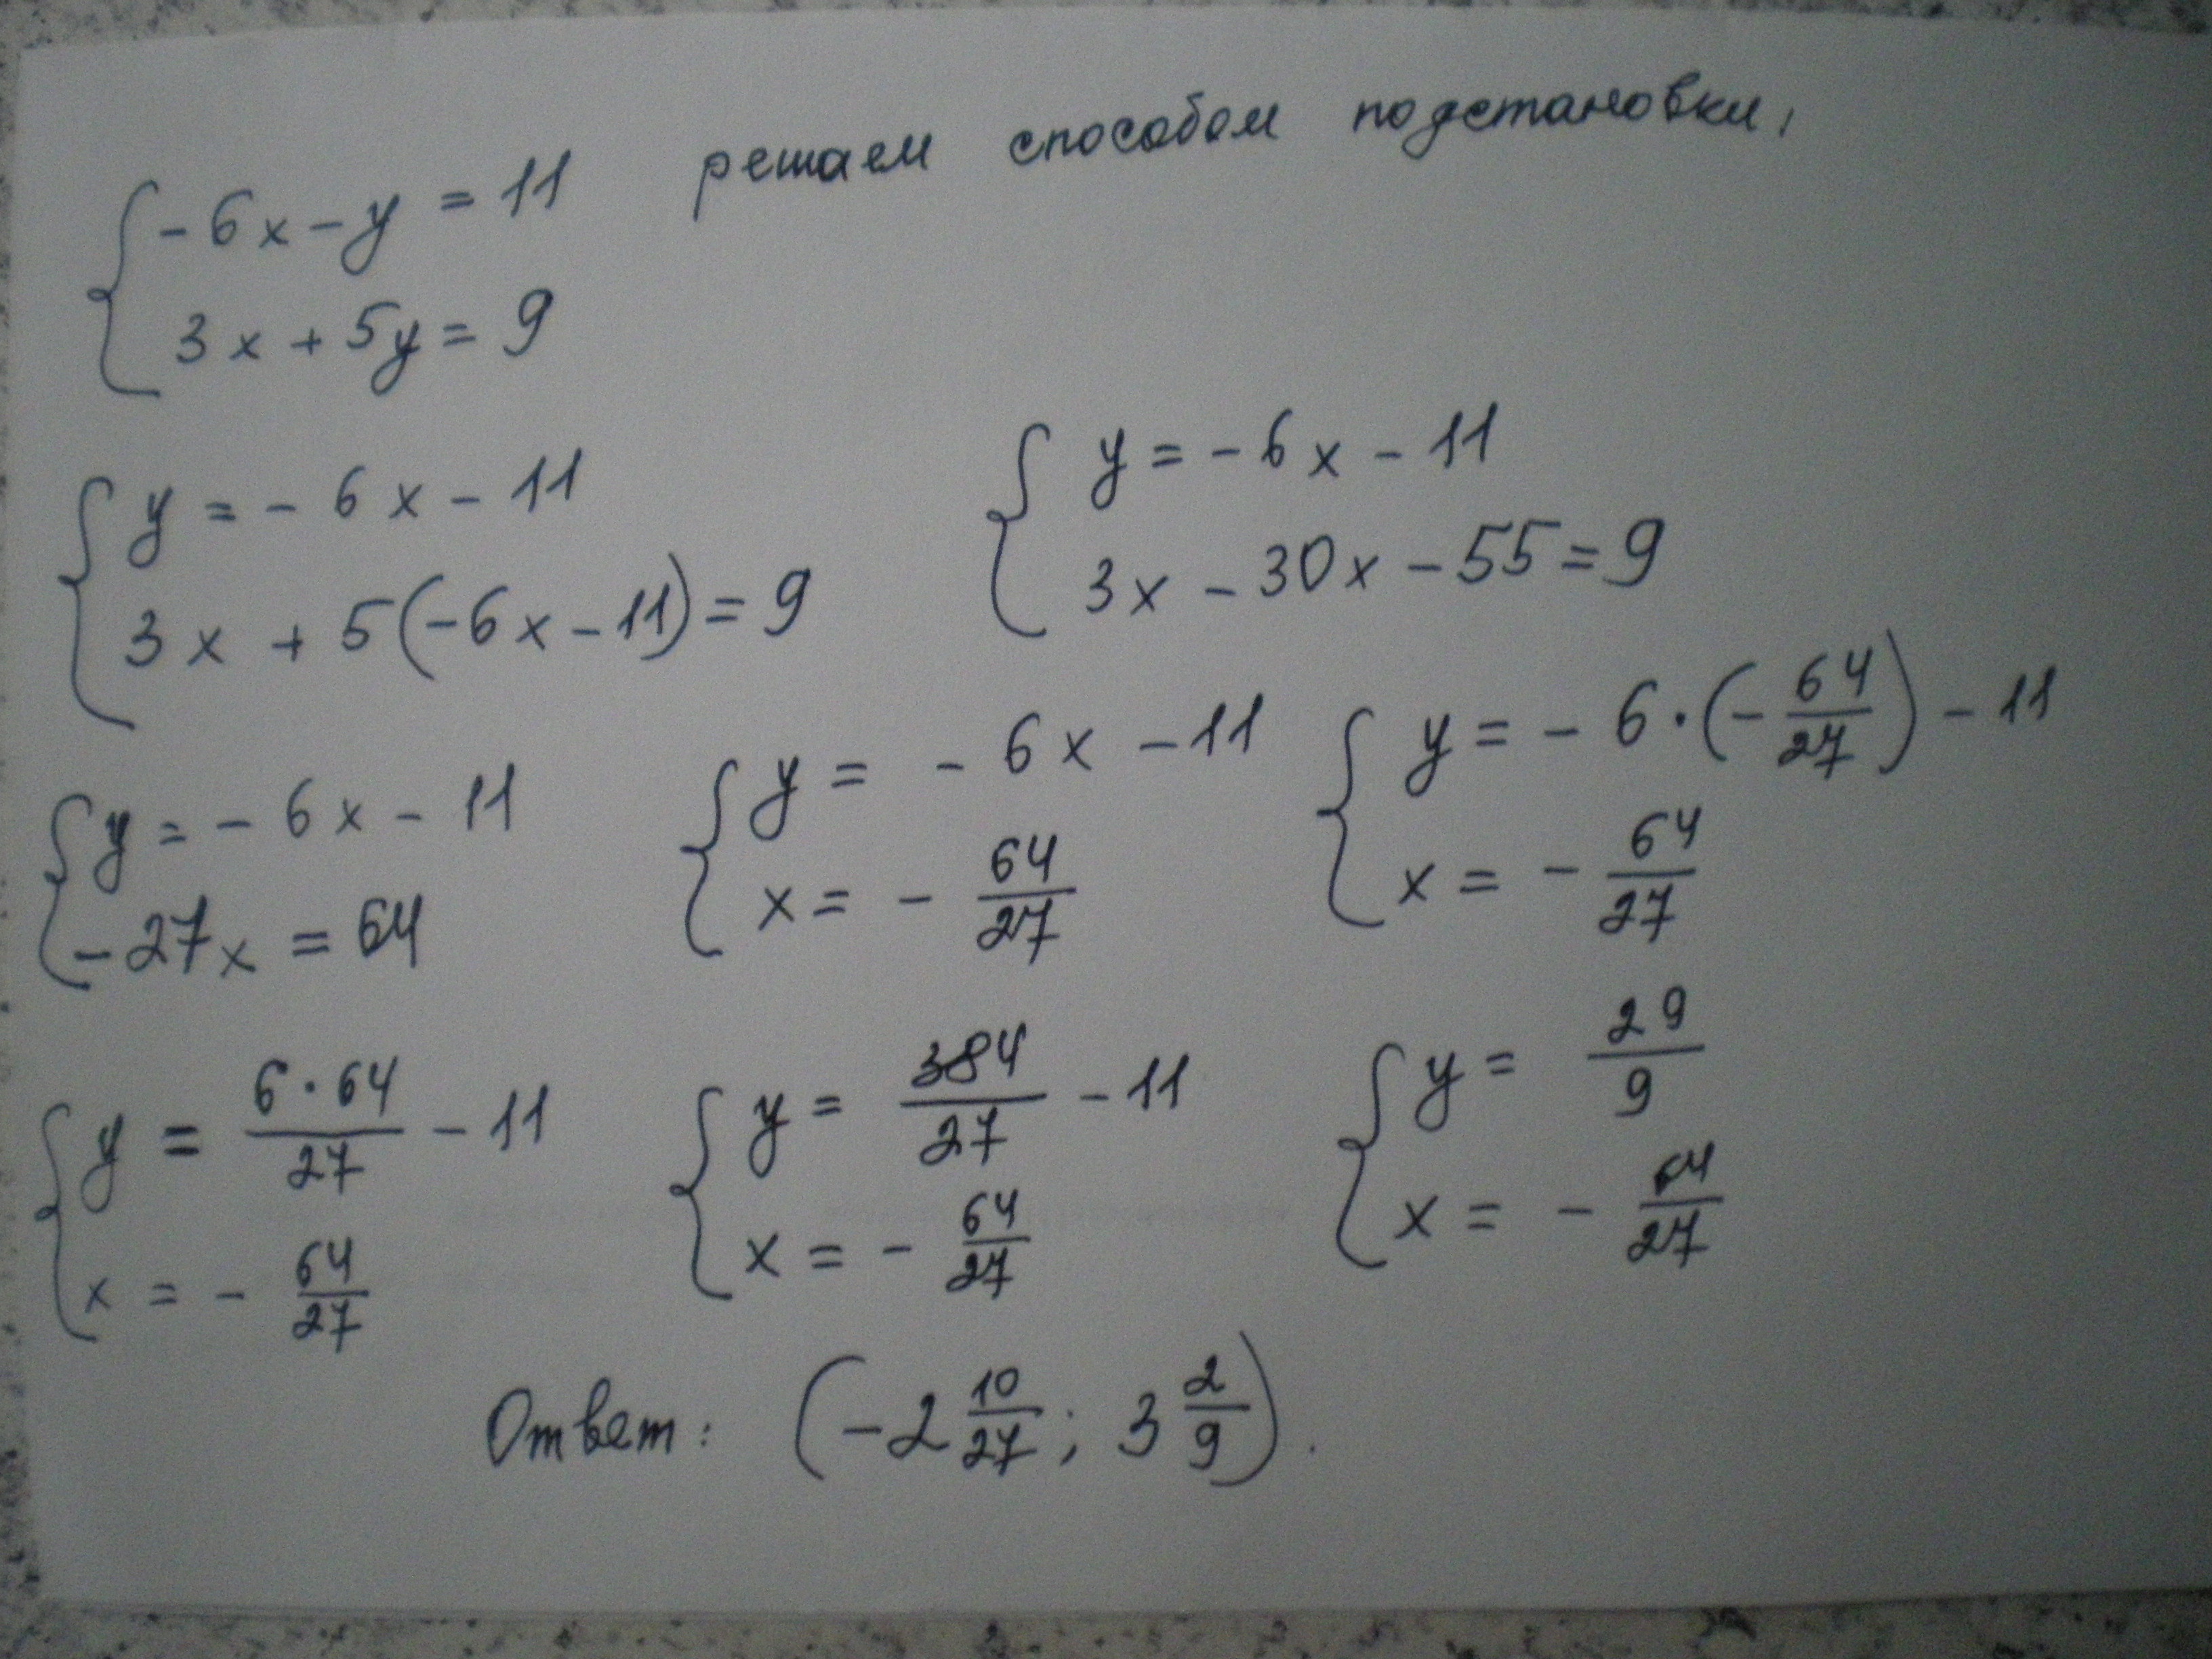 -6x-y = 11 решаем способом подстановки,
3x+5y=9
y = -6x-11
3x + 5(-6x-11) = 9
y = -6x-11
3x - 30x - 55 = 9
y = -6x-11
-27x = 64
y = -6x-11
x = - 64/27
y = -6·(-64/27)-11
x = - 64/27
y = 6·64/27 - 11
x = - 64/27
y = 384/27 - 11
x = - 64/27
y = 29/9
x = - 64/27
Ответ: (-2 10/27; 3 2/9).